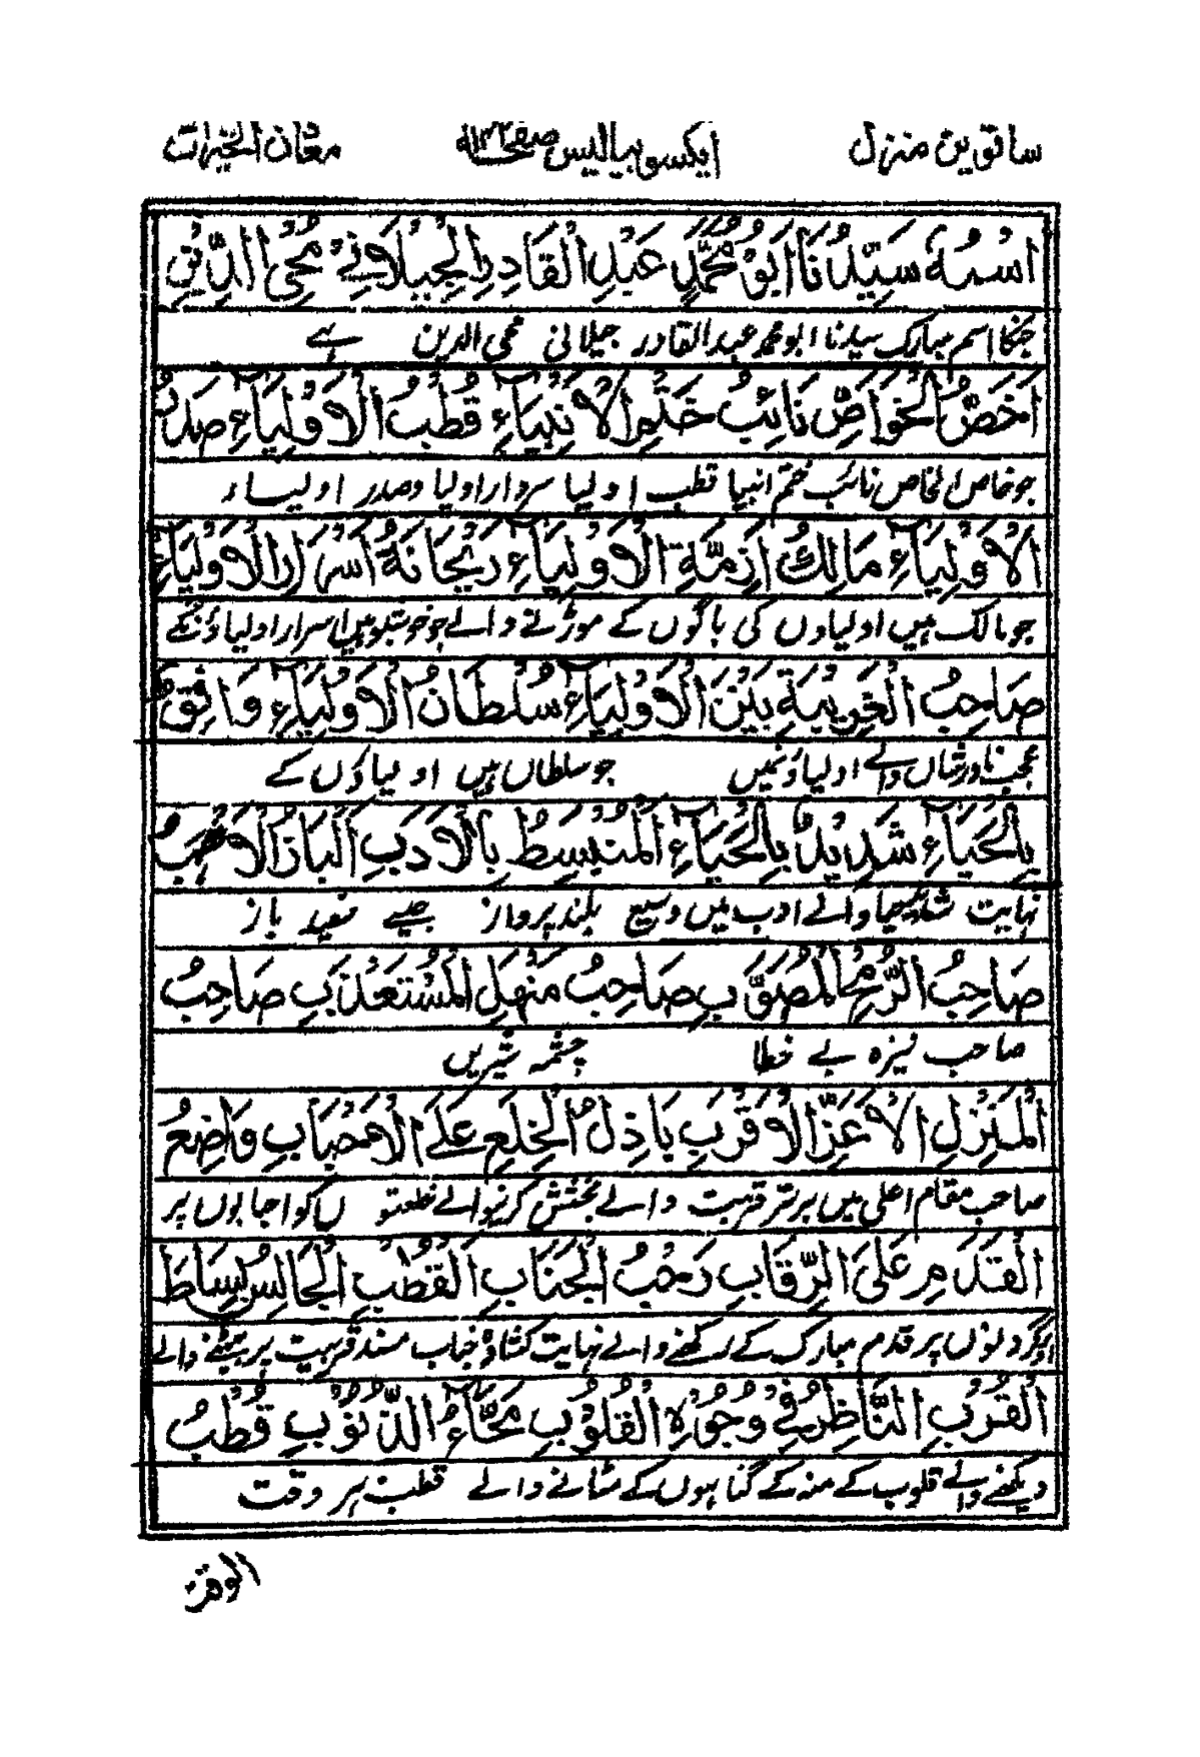 ساتویں منزل ایکسو بیالیس صفحہ ۱۴۲ معدن الخیرات
اسْمُهٗ سَيِّدُنَا اَبُوْ مُحَمَّدٍ عَبْدِ الْقَادِرِ الْجِيْلَانِيْ مُحْيِ الدِّيْنِ
جنکا اسم مبارک سیدنا ابو محمد عبد القادر جیلانی محی الدین ہے
اَخَصُّ الْخَوَاصِّ نَائِبُ خَتْمِ الْاَنْبِيَآءِ قُطْبُ الْاَوْلِيَآءِ صَدْرُ
جو خاص الخاص نائب ختم انبیا قطب اولیا سردار اولیا و صدر اولیاء
الْاَوْلِيَآءِ مَالِكُ اَزِمَّةِ الْاَوْلِيَآءِ رَيْحَانَةُ اَسْرَارِ الْاَوْلِيَآءِ
جو مالک ہیں اولیاوں کی باگوں کے موڑنے والے جو خوشبو ہیں اسرار اولیاؤنکے
صَاحِبُ الْغَرِيْبَةِ بَيْنَ الْاَوْلِيَآءِ سُلْطَانُ الْاَوْلِيَآءِ وَاثِقٌ
عجب نادر شان والے اولیاؤنمیں جو سلطاں ہیں اولیاؤں کے
بِالْحَيَآءِ شَدِيْدٌ بِالْحَيَآءِ الْمُنْبَسِطُ بِالْاَدَبِ اَلْبَازُ الْاَشْهَبُ
نہایت شدید حیا والے ادب میں وسیع بلند پرواز جیسے سفید باز
صَاحِبُ الرُّمْحِ الْمُصَوَّبِ صَاحِبُ مَنْهَلِ الْمُسْتَعْذَبِ صَاحِبُ
صاحب نیزہ بے خطا چشمہ شیریں
الْمَنْزِلِ الْاَعَزِّ الْاَقْرَبِ بَاذِلُ الْخِلَعِ عَلَى الْاَحْبَابِ وَاضِعُ
صاحب مقام اعلی میں برتر قربت والے بخشش کرنیوالے خلعتوں کو احبابوں پر
الْقَدَمِ عَلَى الرِّقَابِ رَحْبُ الْجَنَابِ الْقُطْبِ الْجَالِسُ بِسَاطَ
اوپر گردنوں پر قدم مبارک کے رکھنے والے نہایت کشادہ جناب مسند قربت پر بیٹھنے والے
الْقُرْبِ النَّاظِرُ فِيْ وُجُوْهِ الْقُلُوْبِ مَحَّآءُ الذُّنُوْبِ قُطْبُ
دیکھنے والے قلوب کے منہ کے گناہوں کے مٹانے والے قطب ہر وقت
الوقت